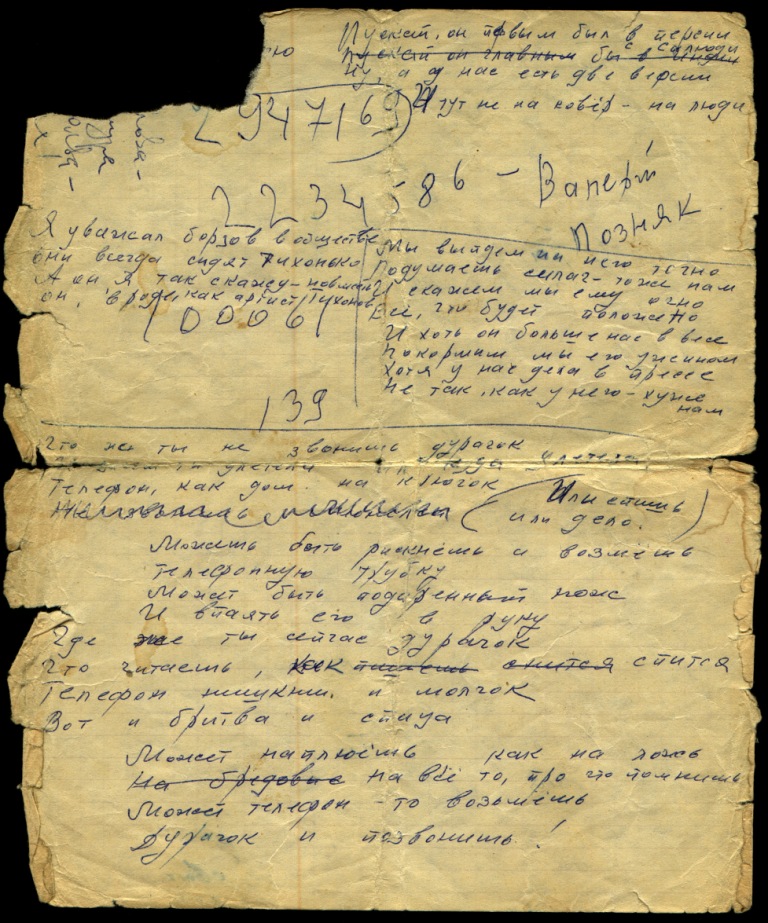 Пускай, он первым был в персии
Пускай он главным был в Индии
с Салюди
ну, а у нас есть две версии
И тут не на ковёр - на люди
ию
294716
2234586 - Валерий
Позняк
Я уважал борзов в обществе
они всегда сидят тихонько
А он я так скажу-
он, вроде как артист Тихонов
(0006)
139
Мы выйдем на него точно
Подумаешь силач - тоже нам
И скажем мы ему очно
Всё, что будет положено
И хоть он больше нас в весе
Покормим мы его ужином
Хотя у нас дела в прессе
Не так, как у него - хуже
нам
Что же ты не звонишь дурачок
Телефон, как дом на крючок
(Или спишь
или дело.)
Может быть рискнёшь и возмёшь
телефонную трубку
Может быть подаренный нож
И впаять его в руку
Где же ты сейчас дурачок
Что читаешь, как пишешь снится спится
Телефон и молчок
Вот и бритва и спица
Может наплюёшь как на ложь
На бредовые на всё то, про что помнишь
Может телефон-то возьмёшь
Дурачок и позвонишь!